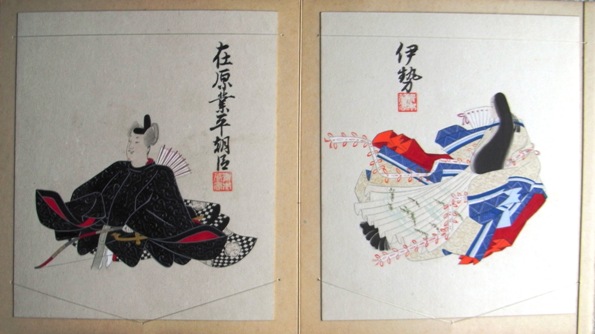 在原業平朝臣
伊勢